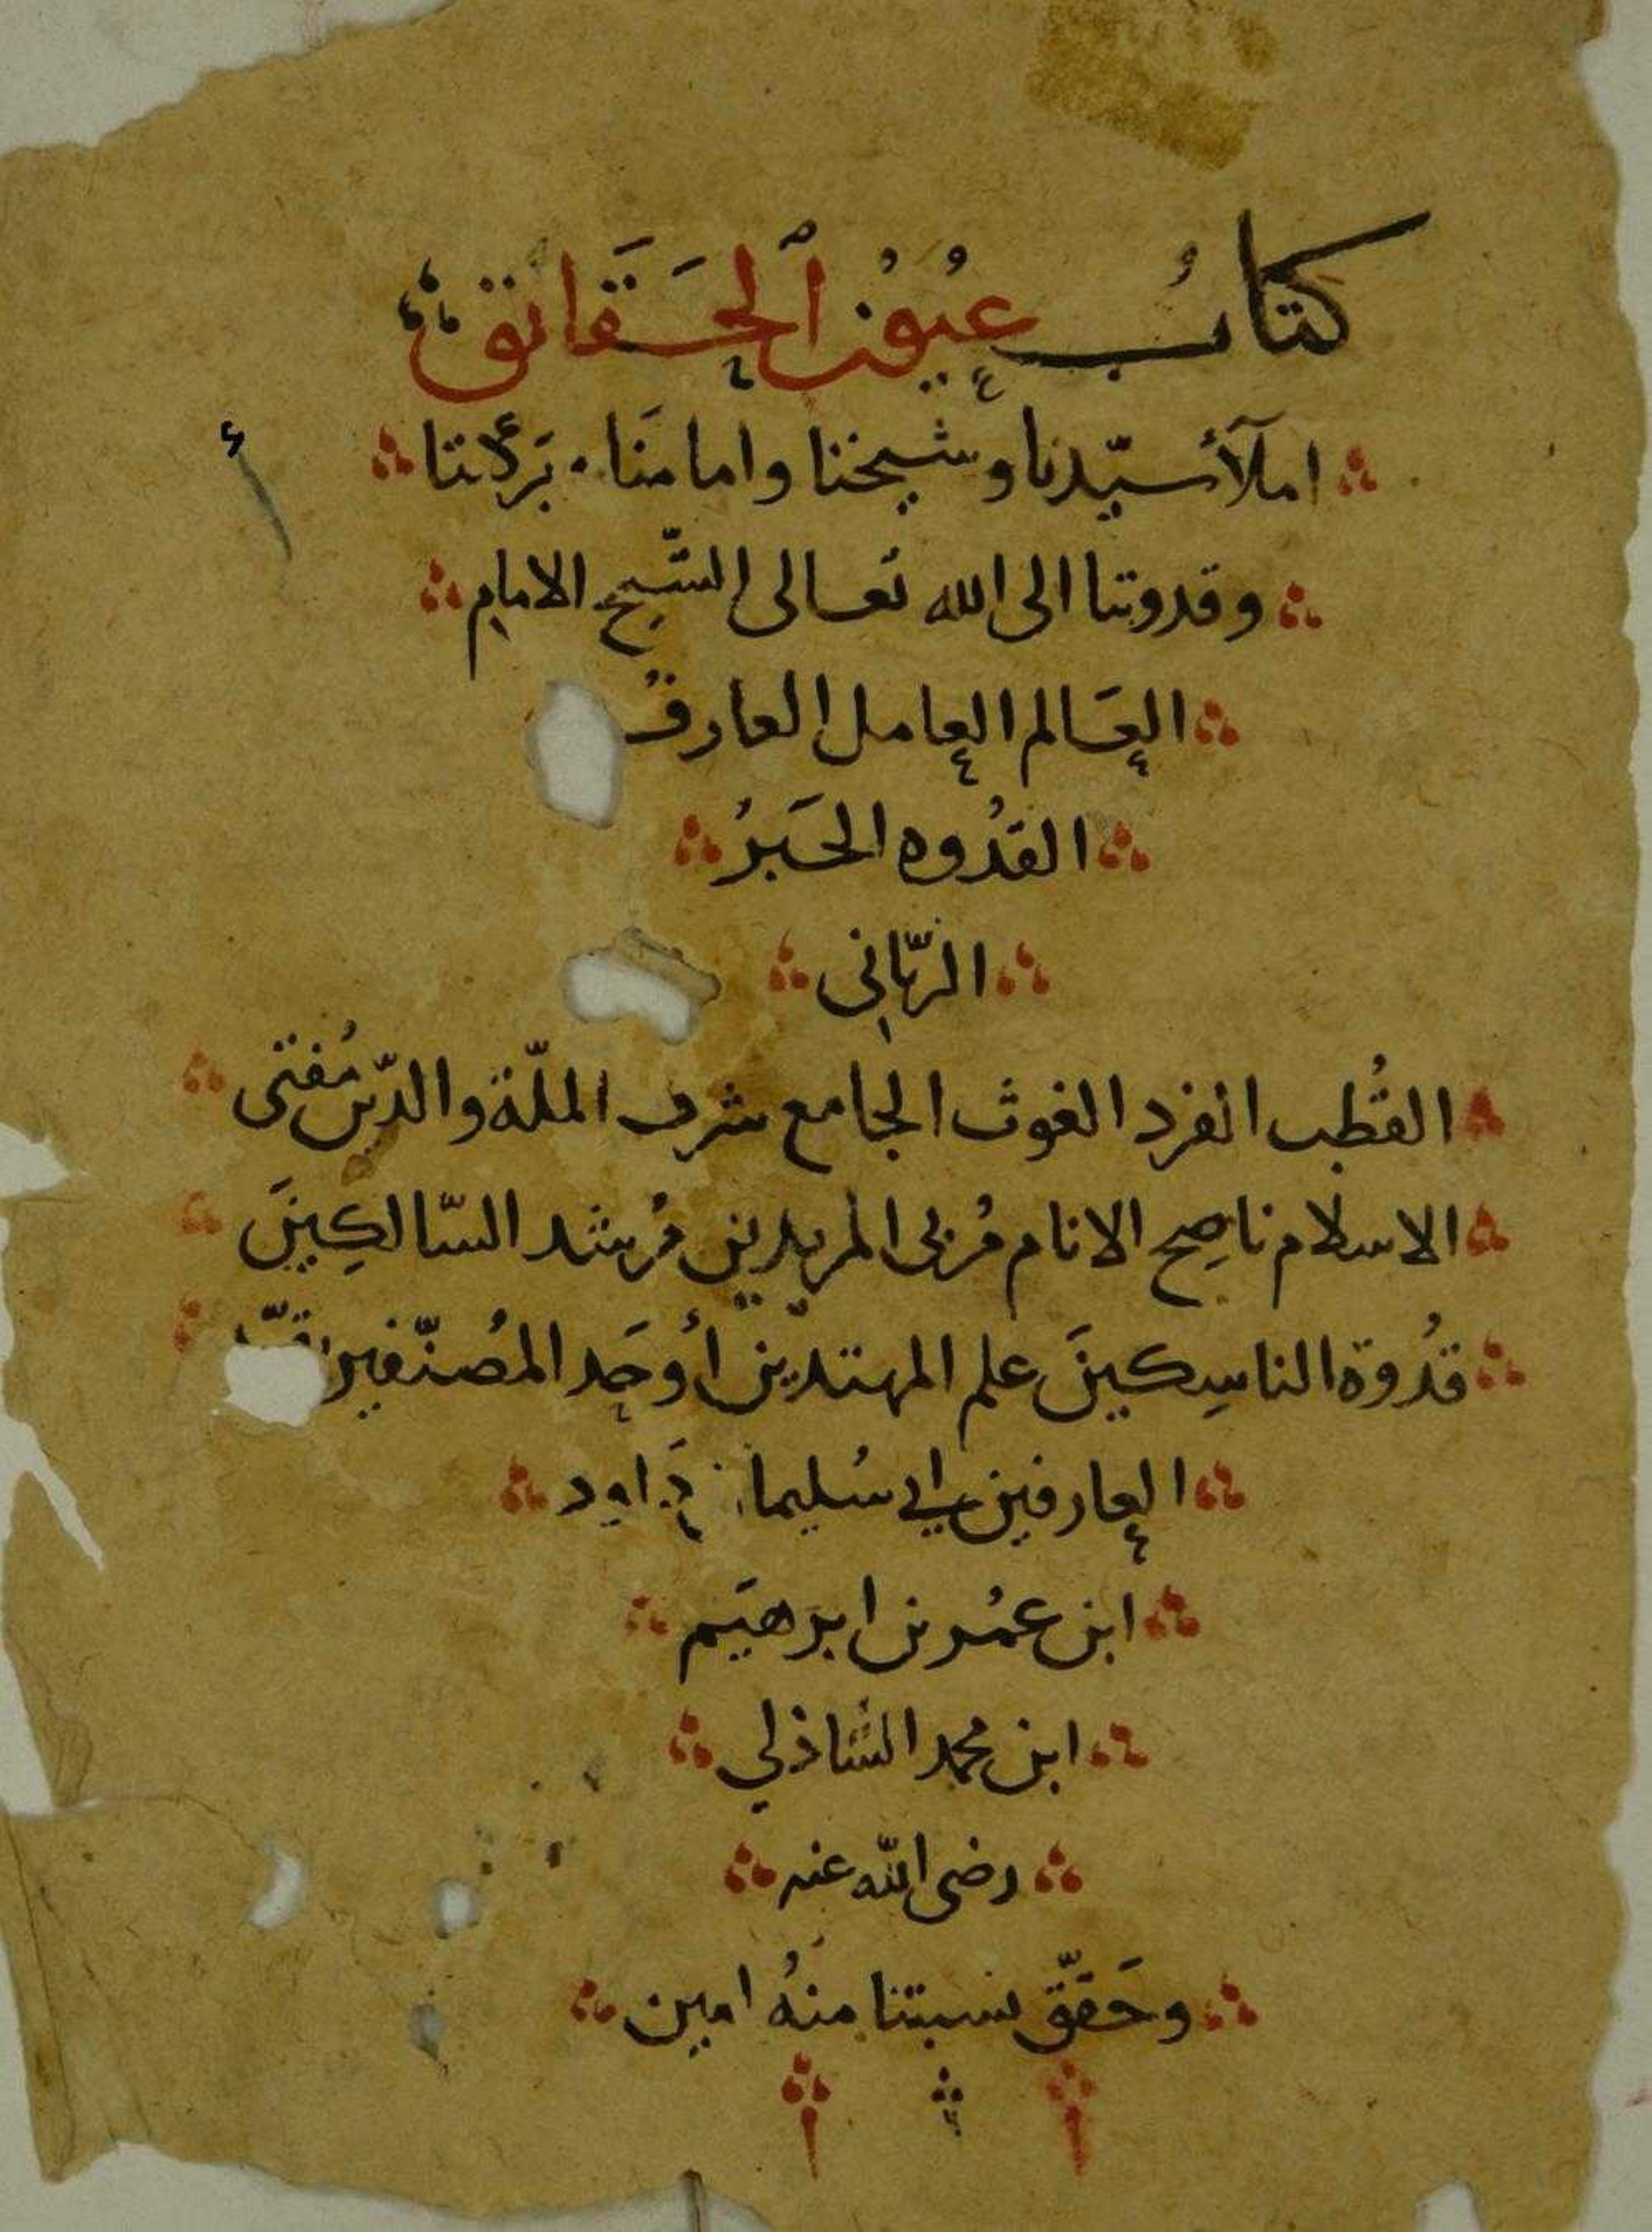 كتابُ عُيُونُ ٱلحَقَائق
املآ سيّدنا وشيخنا وامامنَا بَركتنا
وقدوتنا الى الله تعالى الشّيخ الامام
العَالم العامل العارفُ
القدُوه الحَبرُ
الربّاني
القُطب الفرد الغوث الجامع شرف الملّة والدّين مُفتى
الاسلام ناصِح الانام مُربى المريدين مُرشد السّالكِينَ
قدُوة الناسِكينَ علم المهتدين أوحَد المصُنّفين
العارفين ابي سُليمان دَاود
ابن عمُر بن ابرهيَم
ابن محمد الشاذلي
رضى الله عنه
وحَقّق نسبتنا منهُ امين